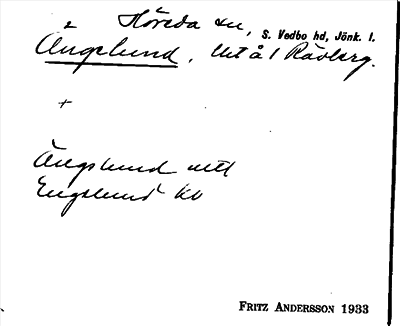 Höreda sn, S. Vedbo hd, Jönk. l.
Ängslund, ut å / Rävberg.
+
Ängslund utt
Engslund kv
FRITZ ANDERSSON 1933